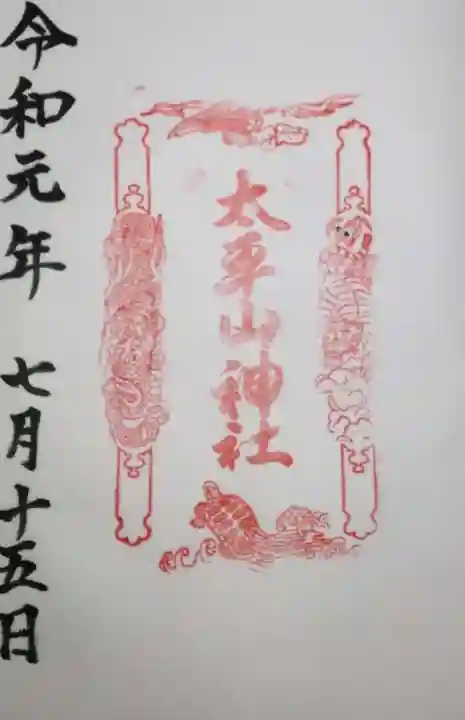 太平山神社
令和元年 七月十五日